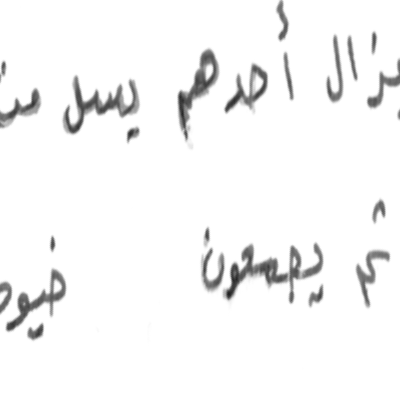 يزال أحدهم يسل من
ثم يجمعون خيو